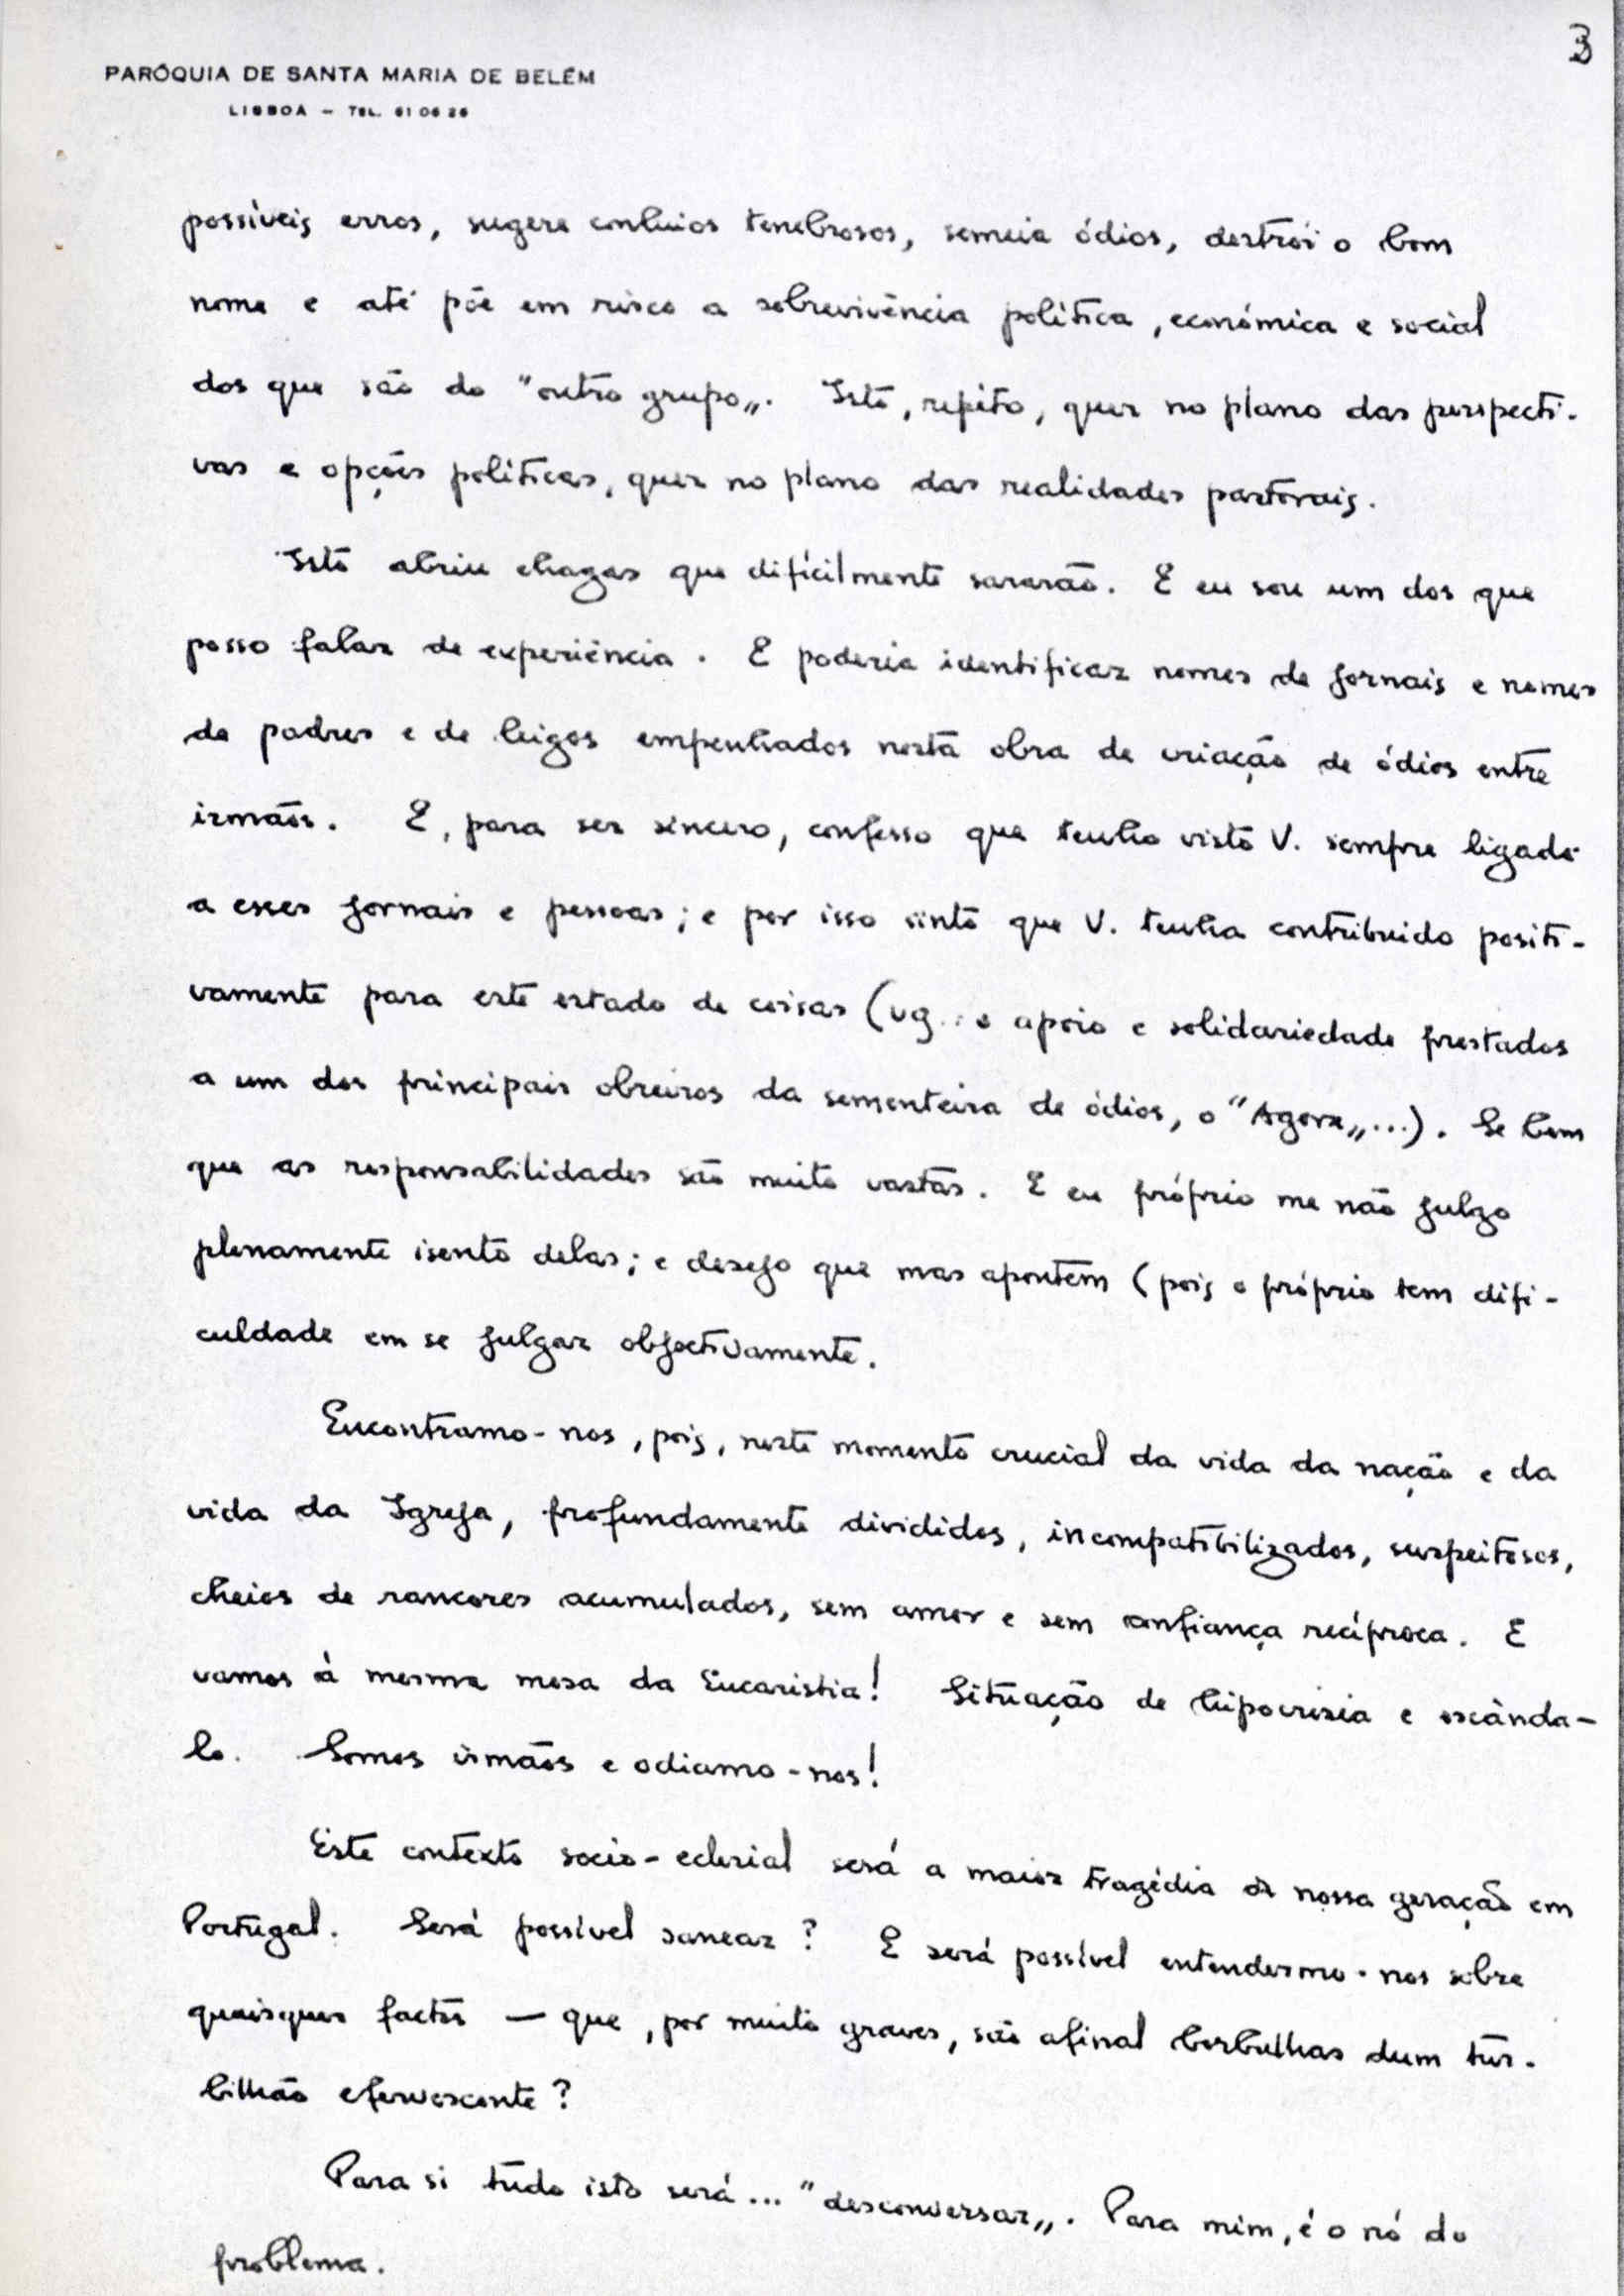 3
PARÓQUIA DE SANTA MARIA DE BELÉM
LISBOA – TEL. 61 06 26
possíveis erros, sugere conluios tenebrosos, semeia ódios, destrói o bom
nome e até põe em risco a sobrevivência política, económica e social
dos que são do "outro grupo„. Isto, repito, quer no plano das perspecti-
vas e opções políticas, quer no plano das realidades pastorais.
Isto abriu chagas que dificilmente sararão. E eu sou um dos que
posso falar de experiência. E poderia identificar nomes de jornais e nomes
de padres e de leigos empenhados nesta obra de criação de ódios entre
irmãos. E, para ser sincero, confesso que tenho visto V. sempre ligado
a esses jornais e pessoas; e por isso sinto que V. tenha contribuido positi-
vamente para este estado de coisas (vg.: o apoio e solidariedade prestados
a um dos principais obreiros da sementeira de ódios, o "Agora„...). Se bem
que as responsabilidades são muito vastas. E eu próprio me não julgo
plenamente isento delas; e desejo que mas apontem (pois o próprio tem difi-
culdade em se julgar objectivamente.
Encontramo-nos, pois, neste momento crucial da vida da nação e da
vida da Igreja, profundamente divididos, incompatibilizados, suspeitosos,
cheios de rancores acumulados, sem amor e sem confiança recíproca. E
vamos à mesma mesa da Eucaristia! Situação de hipocrisia e escânda-
lo. Somos irmãos e odiamo-nos!
Este contexto socio-eclesial será a maior tragédia da nossa geração em
Portugal. Será possível sanear? E será possível entendermo-nos sobre
quaisquer factos — que, por muito graves, são afinal borbulhas dum tur-
bilhão efervescente?
Para si tudo isto será... "desconversar„. Para mim, é o nó do
problema.